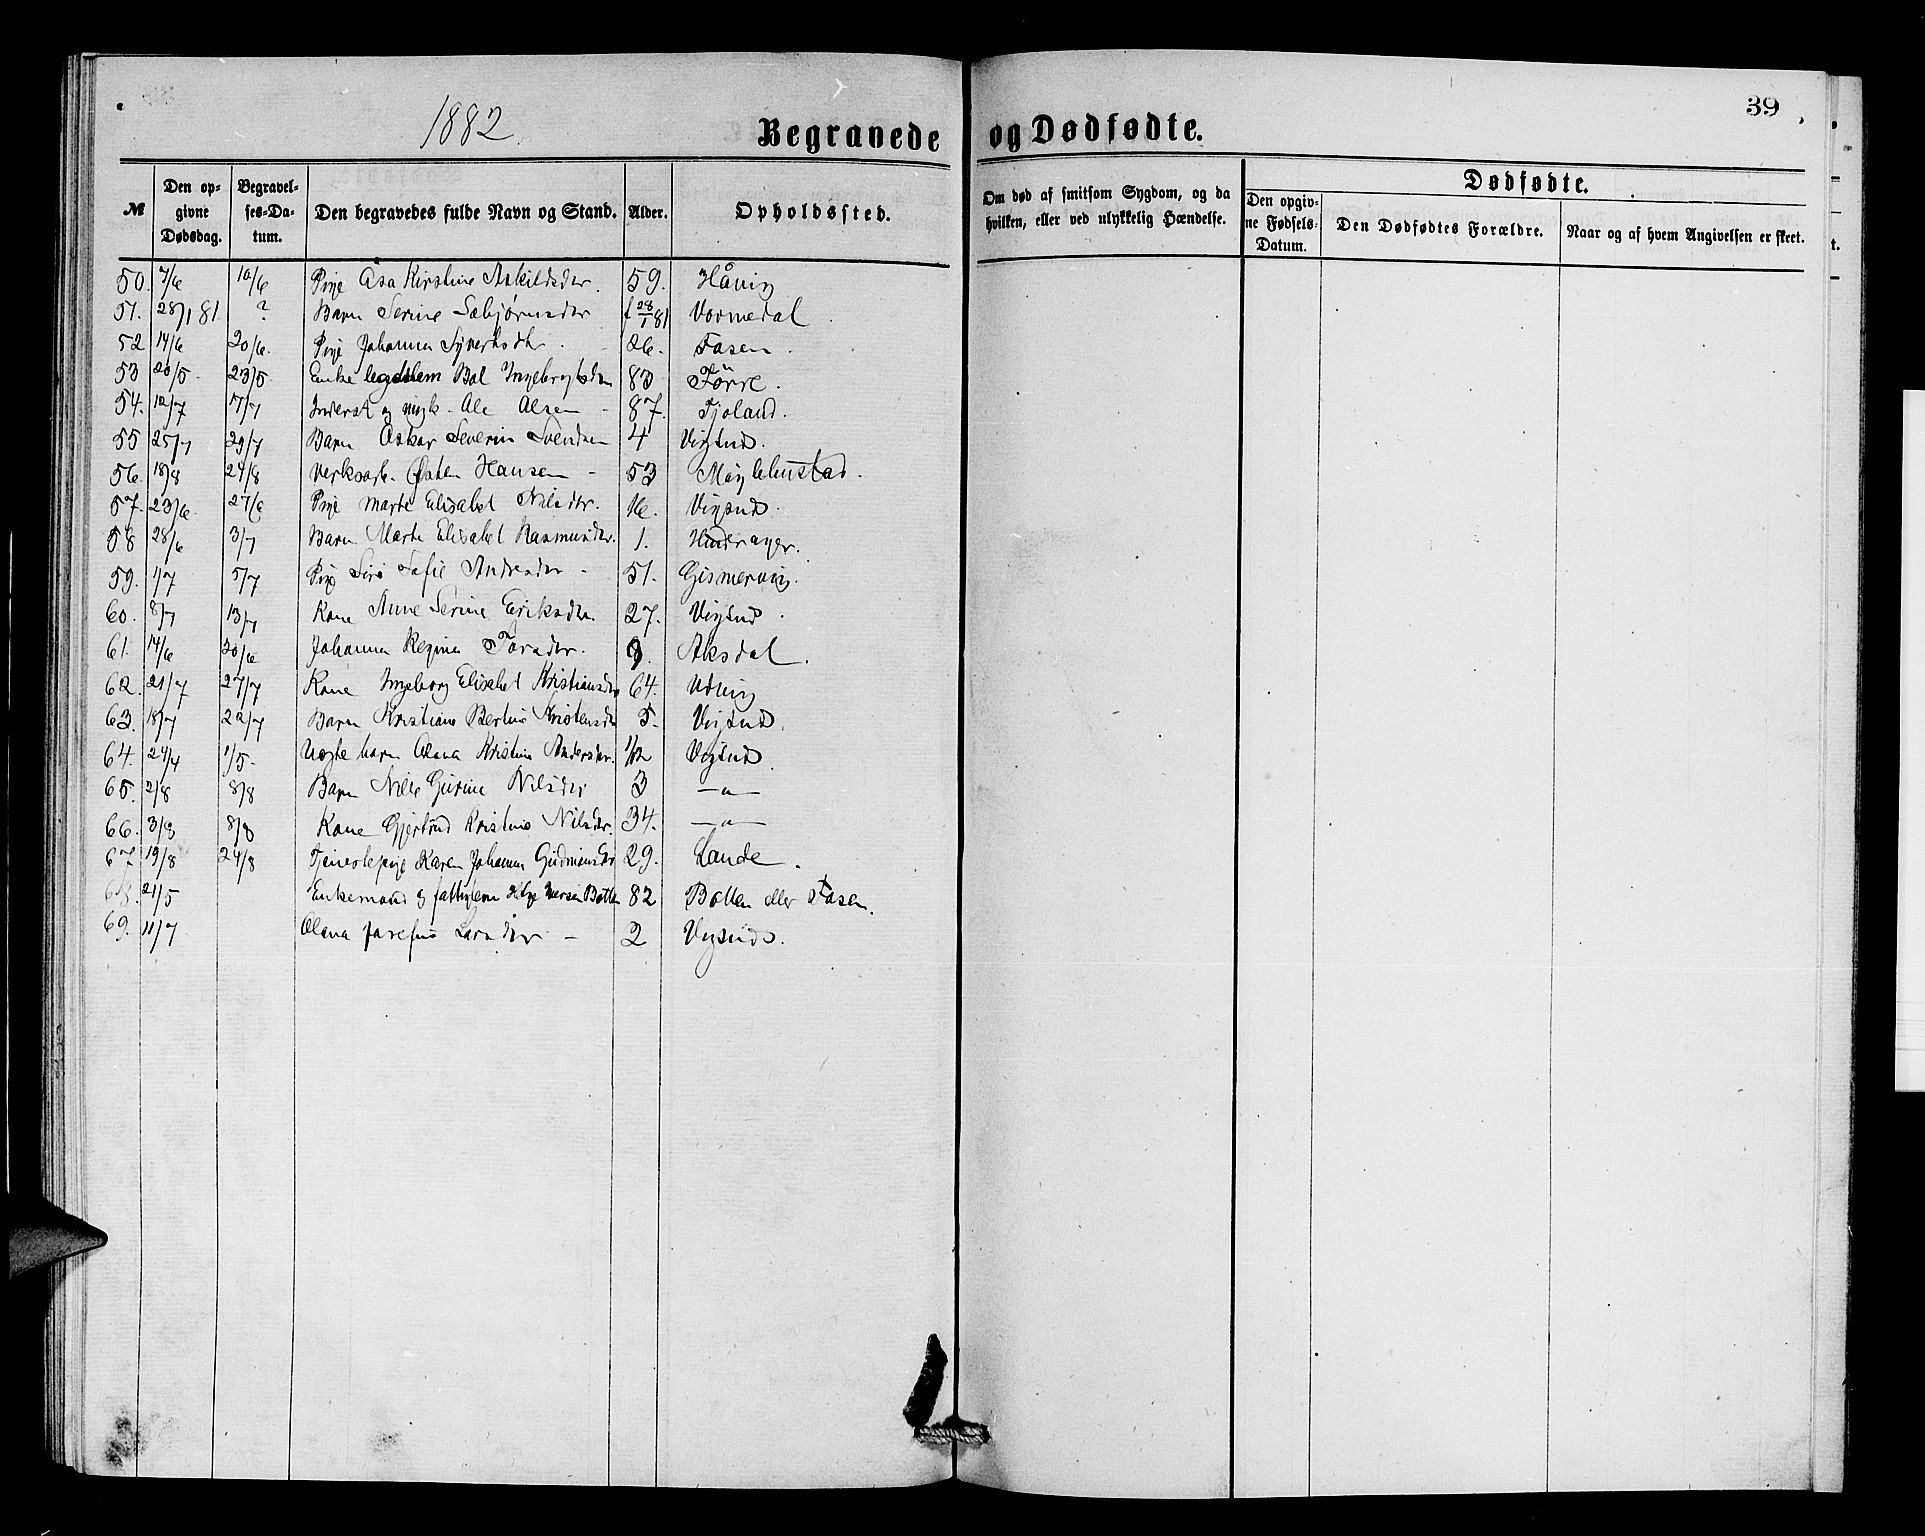 1882
Begravede og Dødfødte.
39
№ Den opgivne Dødsdag. Begravelses-Datum. Den begravedes fulde Navn og Stand. Alder. Opholdssted. Om død af smitsom Sygdom, og da hvilken, eller ved ulykkelig Hændelse. Dødfødte. Den opgivne Fødsels-Datum. Den Dødfødtes Forældre. Naar og af hvem Angivelsen er skeet.
50. 7/6 10/6 Pige Åsa Kirstine Askildsdtr. 59. Håvig
51. 28/1 81. ? Barn Serine Sebjørnsdtr f 28/1 81 Vormedal.
52 14/6 20/6. Pige Johanna Syvertsdtr. 26. Fasen.
53 20/5. 23/5. Enke legdslem Bol Ingebrigtsdtr 83 Førre.
54. 12/7 17/7 Inderst og Ole Olsen - 87. Tjoland.
55 25/7 29/7 Barn Oskar Severin Svendsen 4 Vigsnes.
56. 18/8 24/8 Verksarb. Østen Hansen - 53
57. 23/6. 27/6 Pige Marte Elisabet Nilsdtr. 16. Vigsnes.
58 28/6 3/7 Barn Marte Elisabet Rasmusdtr. 1.
59. 1/7 5/7 Pige Siri Sofie Andreasdtr - 51. Gismervig.
60. 8/7 13/7 Kone Anne Serine Eriksdtr. 27. Vigsnes.
61. 14/6 20/6 Johanna Regina Toresdtr. 9. Aksdal.
62. 21/7 27/7 Kone Ingeborg Elisabet Kristiansdtr 64. Udvig
63. 18/7 22/7 Barn Kristiane Bertine Kristensdtr 5. Vigsnes.
64. 24/4 1/5. Uægte barn Olena Kristine Andersdtr. 1/12 Vigsnes.
65. 2/8 8/8 Barn Nille Gurine Nilsdtr 3 —"—
66. 3/8 8/8 Kone Gjertrud Kristine Nilsdtr. 34. —"—
67. 19/8 24/8 Tjenestepige Karen Johanna Gudmunsdtr 29. Lande.
68. 21/5 Enkemand og fattiglem Helge Iversen Botten 82 Botten eller Fasen.
69. 11/7 Olena Josefine Larsdtr - 2 Vigsnes.